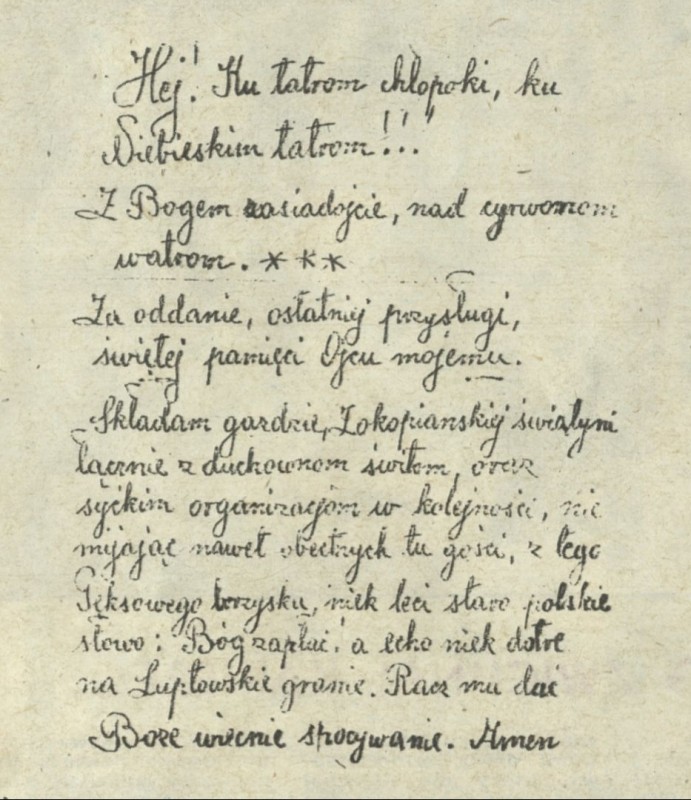 Hej! Ku tatrom chłopoki, ku
Niebieskim tatrom!!!
Z Bogem zasiadojcie, nad cyrwonom
watrom. ***
Za oddanie, ostatniej przysługi,
świętej pamięci Ojcu mojemu.
Składam gaździe, Zokopianskiej świątyni
łącznie z duchownom świtom, oraz
syćkim organizacjom w kolejności, nie
mijając nawet obecnych tu gości, z tego
Pęksowego brzysku, niek leci staro polskie
słowo: Bóg zapłać! a echo niek dotre
na Luptowskie granie. Racz mu dać
Boże wiecnie spocywanie. Amen